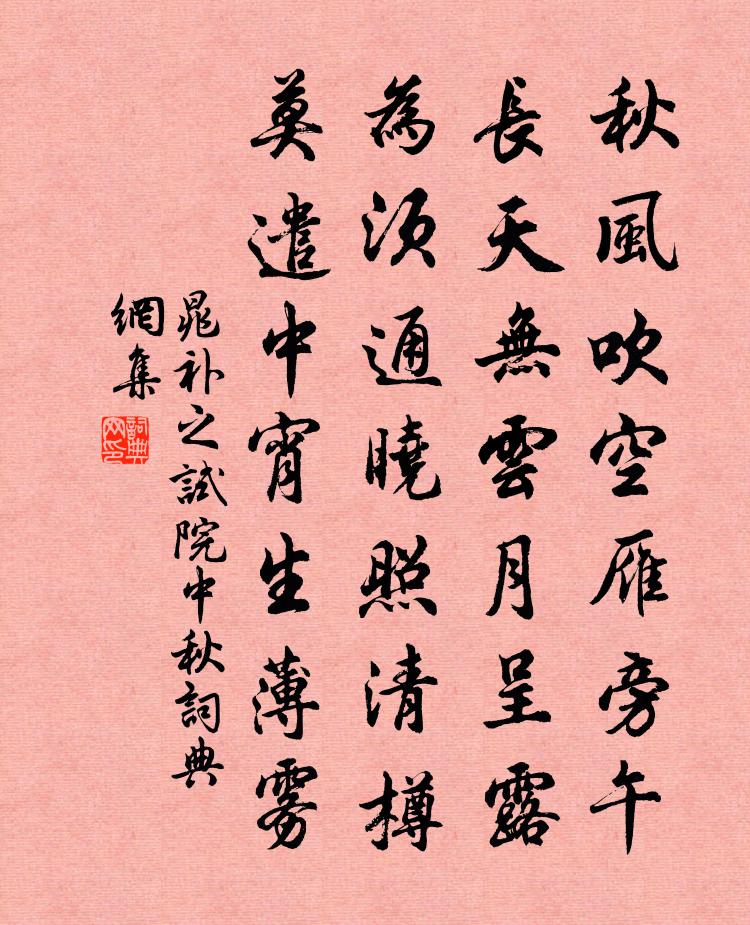 秋風吹空雁旁午
長天無雲月呈露
為須通曉照清樽
莫遣中宵生薄雾
晁补之試院中秋詞典
網集
詞典网印